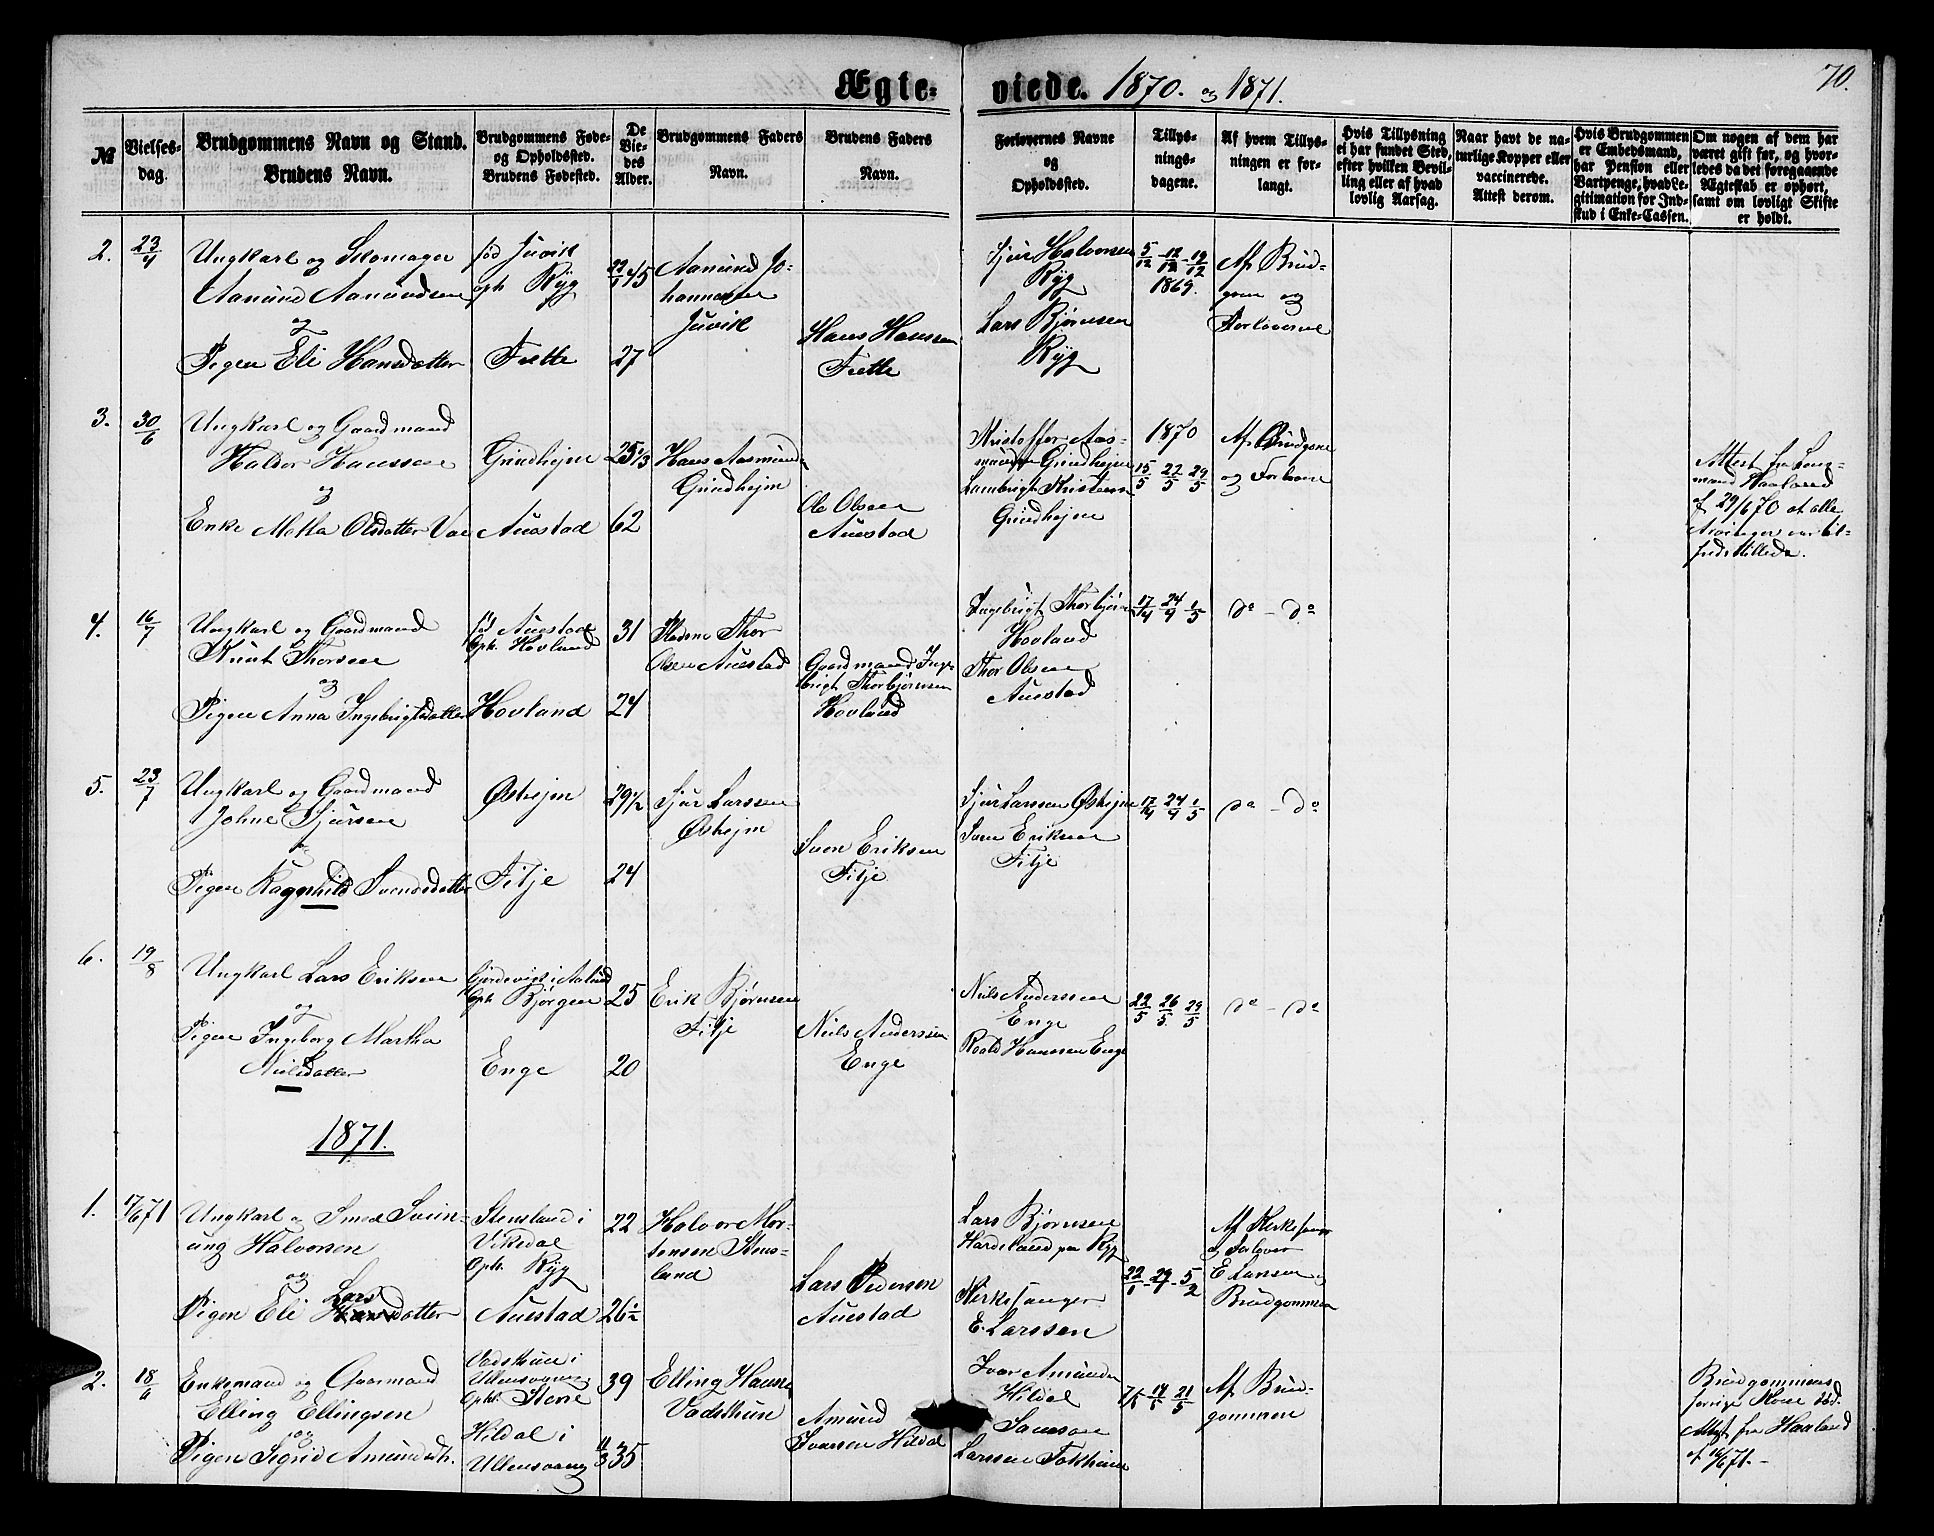 Ægte-viede. 1870. og 1871.
70.
№
Vielses-dag.
Brudgommens Navn og Stand.
Brudens Navn.
Brudgommens Føde-
og Opholdssted.
Brudens Fødested.
De
Vie-
des
Alder.
Brudgommens Faders
Navn.
Brudens Faders
Navn.
Forlovernes Navne
og
Opholdssted.
Tillys-
nings-
dagene.
Af hvem Tillys-
ningen er for-
langt.
Hvis Tillysning
ei har fundet Sted,
efter hvilken Bevil-
ling eller af hvad
lovlig Aarsag.
Naar havt de na-
turlige Kopper eller
vaccinerede.
Attest derom.
Hvis Brudgommen
er Embedsmand,
har Pension eller
Vartpenge, hvad Le-
gitimation for Ind-
skud i Enke-Cassen.
Om nogen af dem har
været gift før, og hvor-
ledes da det foregaaende
Ægteskab er ophørt,
samt om lovligt Skifte
er holdt.
2. 23/4
Ungkarl og Skomager
Aamund Aamundsen
og
Pigen Eli Hansdatter
fød Juvik
oph Ryg
Fiette
27
Aamund Jo-
hannesen
Juvik
Hans Hanssen
Fiette
Sjur Halvorsen
Ryg
Lars Bjørnsen
Ryg
5/12 - 12/12 - 19/12
1869.
Af Brud-
gom og
Forloverne
3. 30/6
Ungkarl og Gaardmand
Haldor Hanssen
og
Enke Metha Olsdatter
Grindhejm
Auestad
25 1/3
62
Hans Aasmunds
Grindhejm
Ole Olsen
Auestad
Kristoffer Aas-
Grindhejm
Lambrigt Kristensen
Grindhejm
1870
15/5 22/5 29/5
Af Brudgom
og Forlovere
Attest fra Lens-
mand Haaland
af 29/6 70 at alle
Arvinger var til-
fredsstillede.
4. 16/7
Ungkarl og Gaardmand
Knut Thorsen
og
Pigen Anna Ingebrigtsdatter
fød Auestad
Oph. Hovland
Hovland
31
24
Thor
Olsen Auestad
Gaardmand Inge-
brigt Thorbjørnsen
Hovland
Ingebrigt Thorbjørnsen
Hovland
Thor Olsen
Auestad
17/4 24/4 1/5
do - do
5. 23/7
Ungkarl og Gaardmand
Johne Sjursen
Pigen Ragnhild Svendsdatter
Østhejm
Fitje
29 1/2
24
Sjur Larssen
Østhejm
Sven Eriksen
Fitje
Sjur Larssen Østhejm
Sven Eriksen
Fitje
17/4 24/4 1/5
do - do
6. 19/8
Ungkarl Lars Eriksen
og
Pigen Ingeborg Martha
Nielsdatter
Oph. Bjørgen
Enge
25
20
Erik Bjørnsen
Fitje
Niels Anderssen
Enge
Niels Anderssen
Enge
Roald Hanssen Enge
22/5 26/5 29/5
do - do
1871.
1. 17/6 71
Ungkarl og Smed Svein-
ung Halvorsen
og
Pigen Eli Larsdatter
Stensland i
Vikedal
Oph. Ryg
Auestad
22
26 1/2
Halvor Mor-
tensen Stens-
land
Lars Pedersen
Auestad
Lars Bjørnsen
Hardeland paa Ryg
Kirkesanger
E. Larssen
22/1 - 29/1 - 5/2
Af Kirkesanger
og Forlover
E. Larssen og
Brudgommen
2. 18/6
Enkemand og Gaarmand
Elling Ellingsen
og
Pigen Sigrid Amundsdtr.
Vadsthun i
Ullensvang
Oph.
Hildal i
Ullensvang
39
35
Elling Hanse
Vadsthun
Amund
Ivarsen Hildal
Ivar Amunds
Hildal
Samson
Larssen Tokheim
7/5 - 14/5 21/5
Af Brud-
gommen
Brudgommens
forrige Kone død.
Attest fra Haaland
af 16/6 71.-